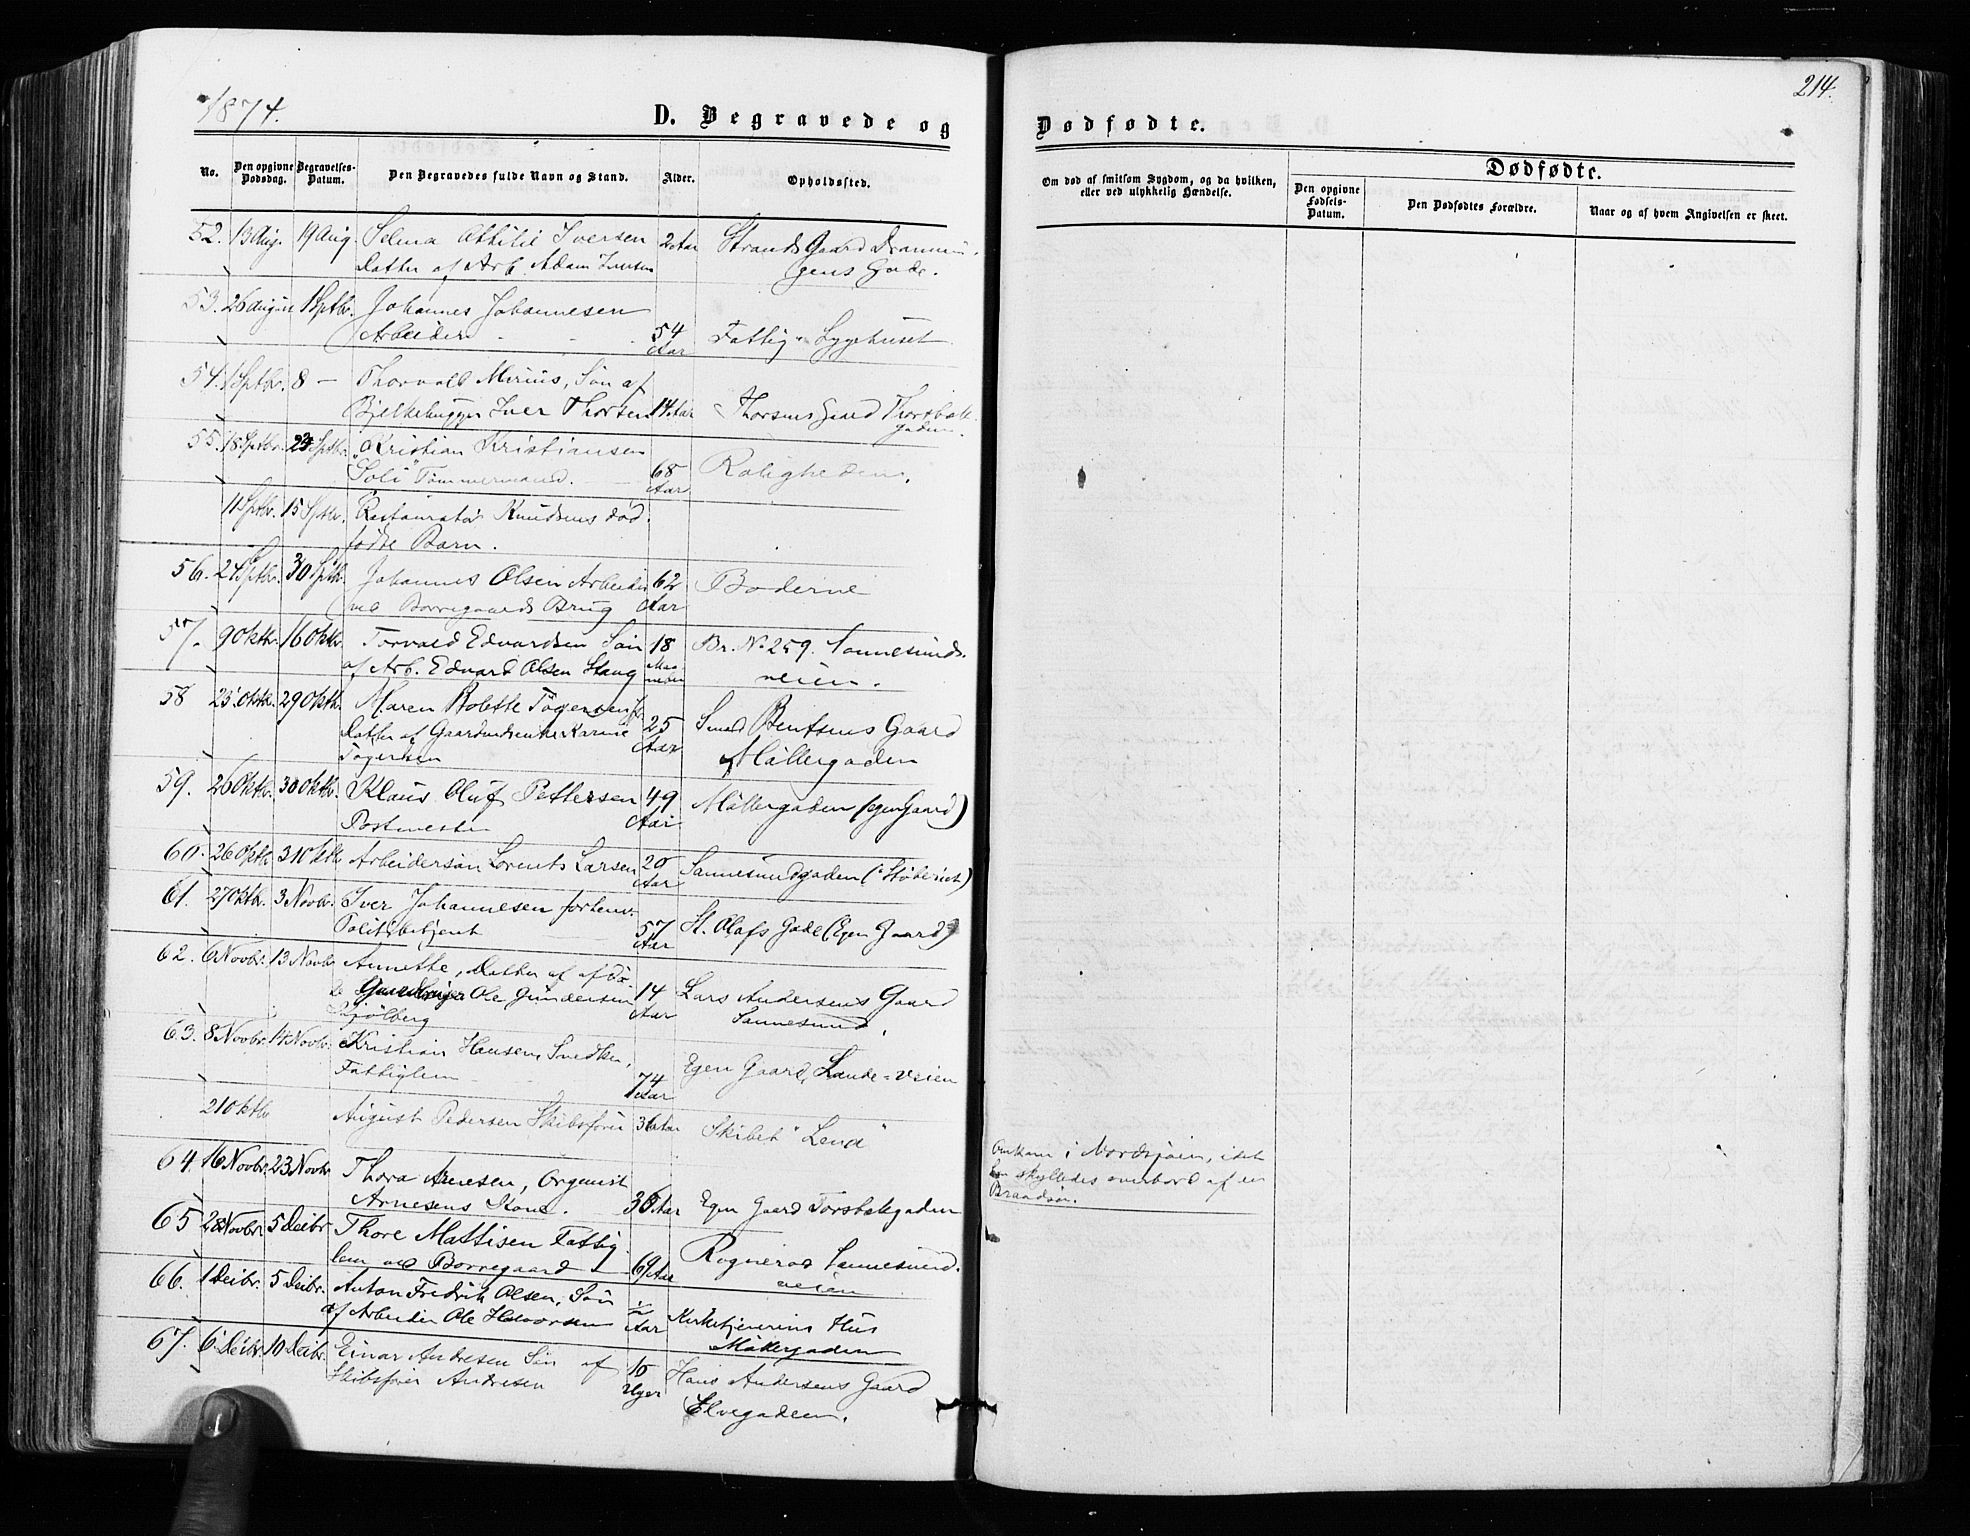 1874.
D. Begravede og
No.
Den opgivne Dødsdag.
Begravelses-Datum.
Den Begravedes fulde Navn og Stand.
Alder.
Opholdssted.
52. 13 Aug. 19 Aug. Selma Ottilie Iversen 2 Aar Strands Gaard Drammin-
Datter af Arb. Adam Iversen gens Gade.
53. 26 August 1 Septbr. Johannes Johannesen
Arbeider 54 Aar Fattig-Sygehuset
54. 1 Septbr. 8 — Thorvald Minius, Søn af
Bjelkehugger Iver Thorsen 14 Aar Thorsens Gaard Thorsbak-
gaden.
55. 18 Septbr. 24 Septbr. Kristian Kristiansen
"Soli" Tømmermand. 68 Aar Roligheden.
11 Septbr. 15 Septbr. Restauratør Knudsens død
fødte Barn.
56. 24 Septbr. 30 Septbr. Johannes Olsen Arbeider 62 Boderne
ved Borregaards Brug Aar
57. 9 Oktbr. 16 Oktbr. Torvald Edvardsen Søn 18 Br. No 259. Sannesunds-
af Arb. Edvard Olsen Stang Maaneder veien.
58 25 Oktbr. 29 Oktbr. Maren Bolette Tøgersen,
Datter af Gaardmandsenke Karine 25 Smed Bentsens Gaard
Tøgersen Aar Møllergaden
59. 26 Oktbr. 30 Oktbr. Klaus Oluf Pettersen 49 Møllergaden (egen Gaard)
Postmester Aar
60. 26 Oktbr. 31 Oktbr. Arbeidersøn Lorents Larsen 20 Sannesundgaden (i Støberiet)
Aar
61. 27 Oktbr. 3 Novbr. Iver Johannesen forhenv.
Politibetjent 57 Aar St. Olafs Gade (Egen Gaard)
62. 6 Novbr. 13 Novbr. Annette, Datter af afdø-
de Gaardbruger Ole Gundersen 14 Lars Andersens Gaard
Sjølberg Aar Sannesund.
63. 8 Novbr. 14 Novbr. Kristian Hansen, Snedker,
Fattiglem 74 Aar Egen Gaard, Lande-Veien
21 Oktbr. August Pedersen Skibsfører 36 Aar Skibet "Lena"
64 16 Novbr. 23 Novbr. Thora Arnesen, Organist
Arnesens Kone. 36 Aar Egen Gaard Torsbakgaden
65 28 Novbr. 5 Decbr. Thore Mattisen Fattig
lem ved Borregaard 69 Aar Rognerød Sannesund-
veien
66. 1 Decbr. 5 Decbr. Anton Fredrik Olsen, Søn
af Arbeider Ole Halvorsen 1/2 Aar Kirketjenerens Hus
Møllergaden
67. 6 Decbr. 10 Decbr. Einar Andresen Søn af 10 Hans Andersens Gaard
Skibsfører Andresen Uger Elvegaden.
214.
Dødfødte.
Om død af smitsom Sygdom, og da hvilken, eller ved ulykkelig Hændelse.
Dødfødte.
Den opgivne Fødsels-Datum.
Den Dødfødtes Forældre.
Naar og af hvem Angivelsen er skeet.
Omkom i Nordsjøen, idet
han skylledes overbord af en
Braadsø.